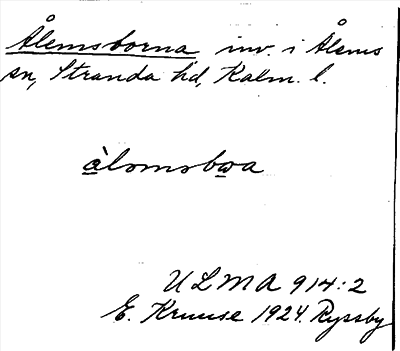 Ålemsborna inv. i Ålems
sn, Stranda hd, Kalm. l.
àlomsbωa
ULMA 914:2
E. Kruuse 1924. Ryssby